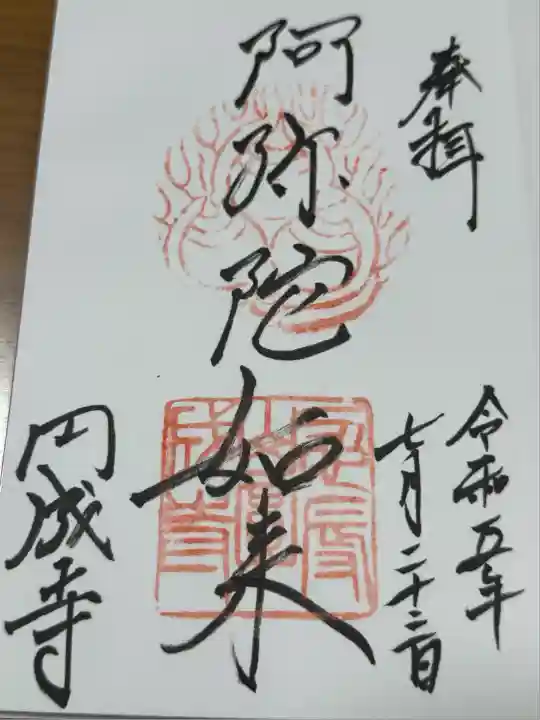 奉拝
令和五年
七月二十二日
阿弥陀如来
円成寺